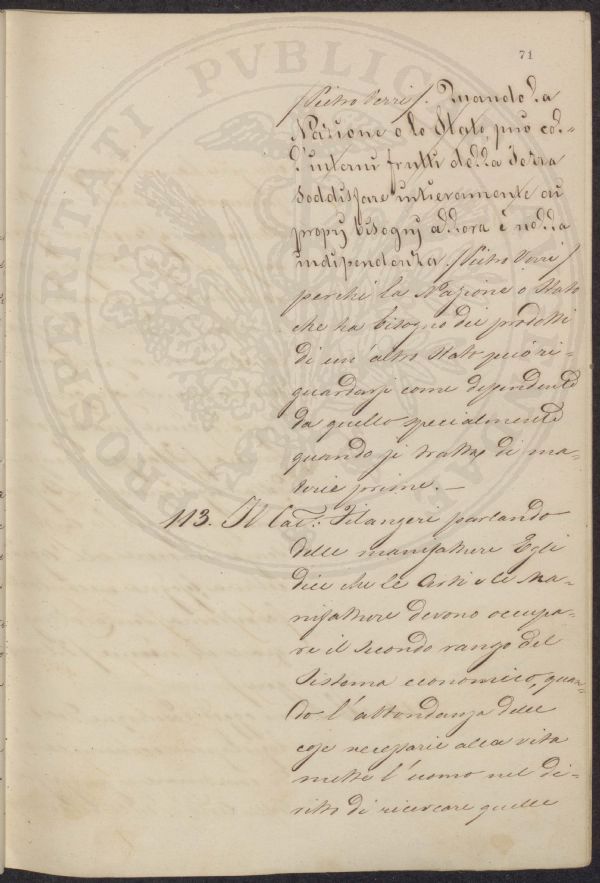 71
(Pietro Verri). Quando la
Nazione o lo Stato può col-
l'interni frutti della Terra
soddisfare intieramente ai
proprj bisognj allora è nella
indipendenza (Pietro Verri)
perché la Nazione o Stato
che ha bisogno dei prodotti
di un'altro Stato può ri-
guardarsi come dipendente
da quello specialmente
quando si tratta di ma-
terie prime.—
113. Il Cav: Filangeri parlando
delle manifatture Egli
dice che le Arti e le Ma-
nifatture devono occupa-
re il secondo rango del
sistema economico, quan-
do l'abbondanza delle
cose necessarie alla vita
mette l'uomo nel di-
ritto di ricercare quelle
PROSPERITATI PVBLICAE